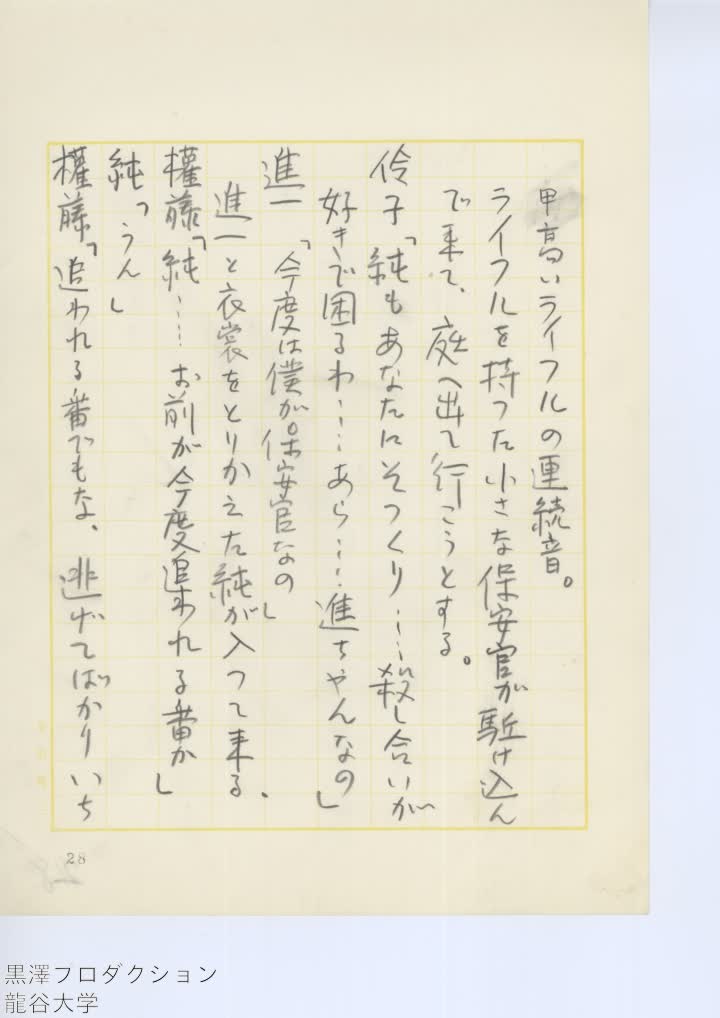 甲高いライフルの連続音。
ライフルを持つた小さな保安官が駈け込ん
で来て、庭へ出て行こうとする。
伶子「純もあなたにそつくり……殺し合いが
好きで困るわ……あら……進ちやんなの」
進一「今度は僕が保安官なの」
進一と衣裳をとりかえた純が入つて来る、
權藤「純……お前が今度追われる番か」
純「うん」
權藤「追われる番でもな、逃げてばかりいち
28
黒澤プロダクション
龍谷大学